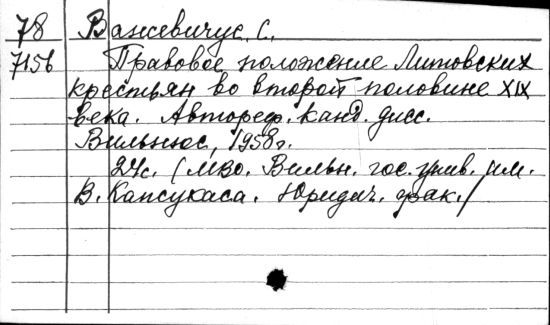 78 Вансевичус. С.
7156 Правовое положение Литовских
крестьян во второй половине XIX
века. Автореф. канд. дисс.
Вильнюс, 1958 г.
24с. (МВО. Вильн. гос. унив. им.
В. Капсукаса. Юридич. фак./